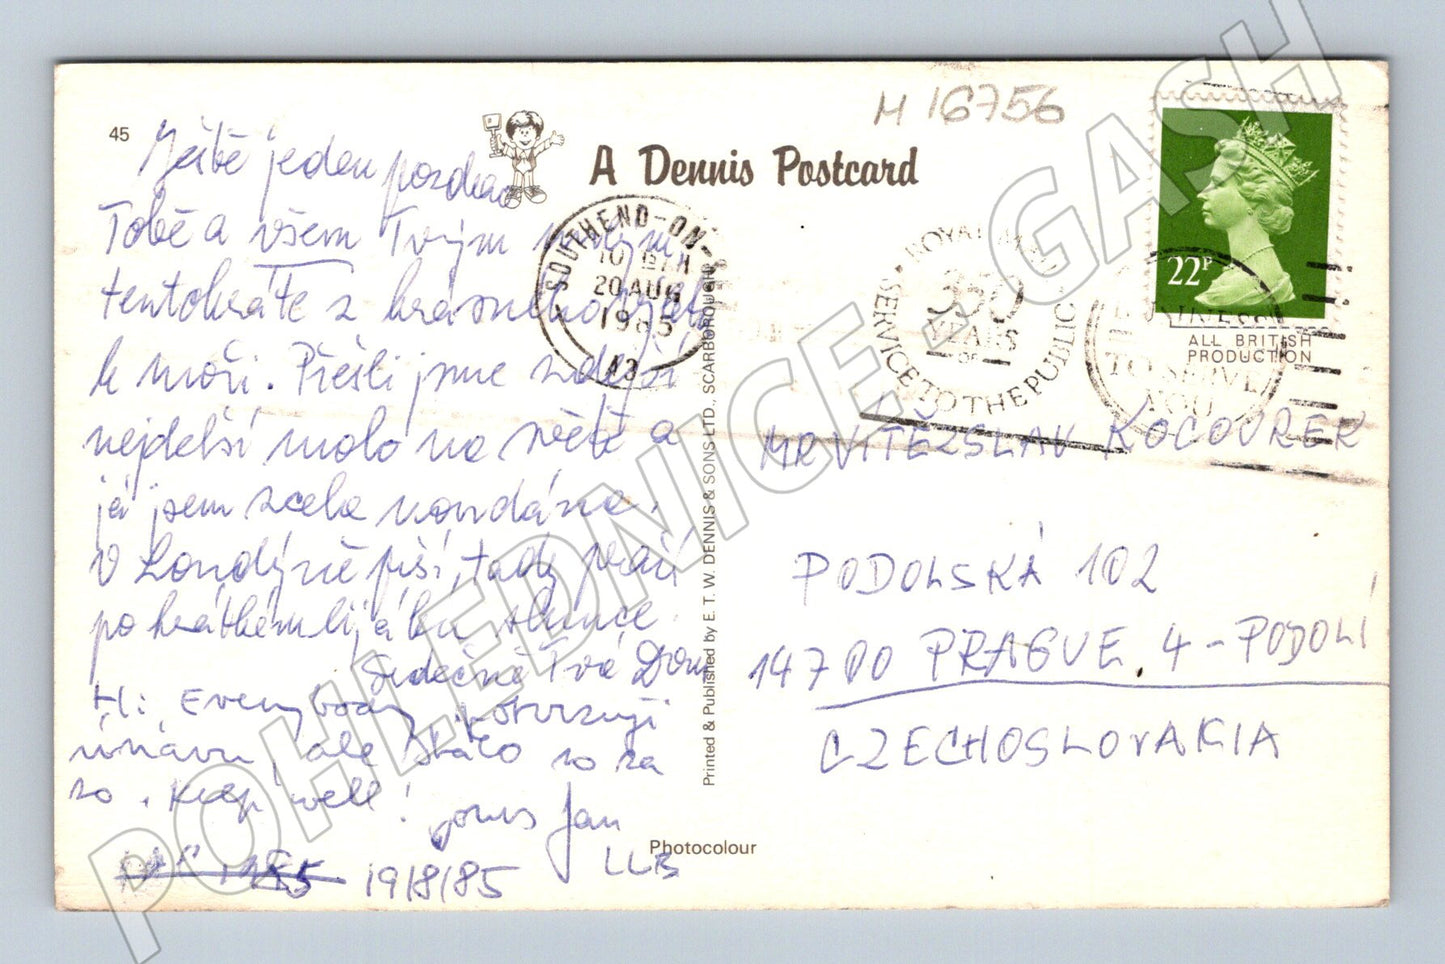 45
M 16756
A Dennis Postcard
Ještě jeden pozdrav
Tobě a všem Tvým milým
tentokráte z krásného výletu
k moři. Přešli jsme zdejší
nejdelší molo na světě a
já jsem zcela
V Londýně prší, tady praží
po krátkém lijáku slunce.
Srdečně Tvá
Hi Everybody, potvrzuji
únavu, ale stálo to za
to. Keep well!
yours Jan
19/8/85
LLB
SOUTHEND-ON-
20 AUG
1985
A3
ROYAL MAIL
350
YEARS
OF
SERVICE TO THE PUBLIC
22P
ALL BRITISH
PRODUCTION
TO SERVE
YOU
MR VÍTĚZSLAV KOCOUREK
PODOLSKÁ 102
147 00 PRAGUE 4 - PODOLÍ
CZECHOSLOVAKIA
Printed & Published by E. T. W. DENNIS & SONS LTD., SCARBOROUGH
Photocolour
POHLEDNICE - GASH